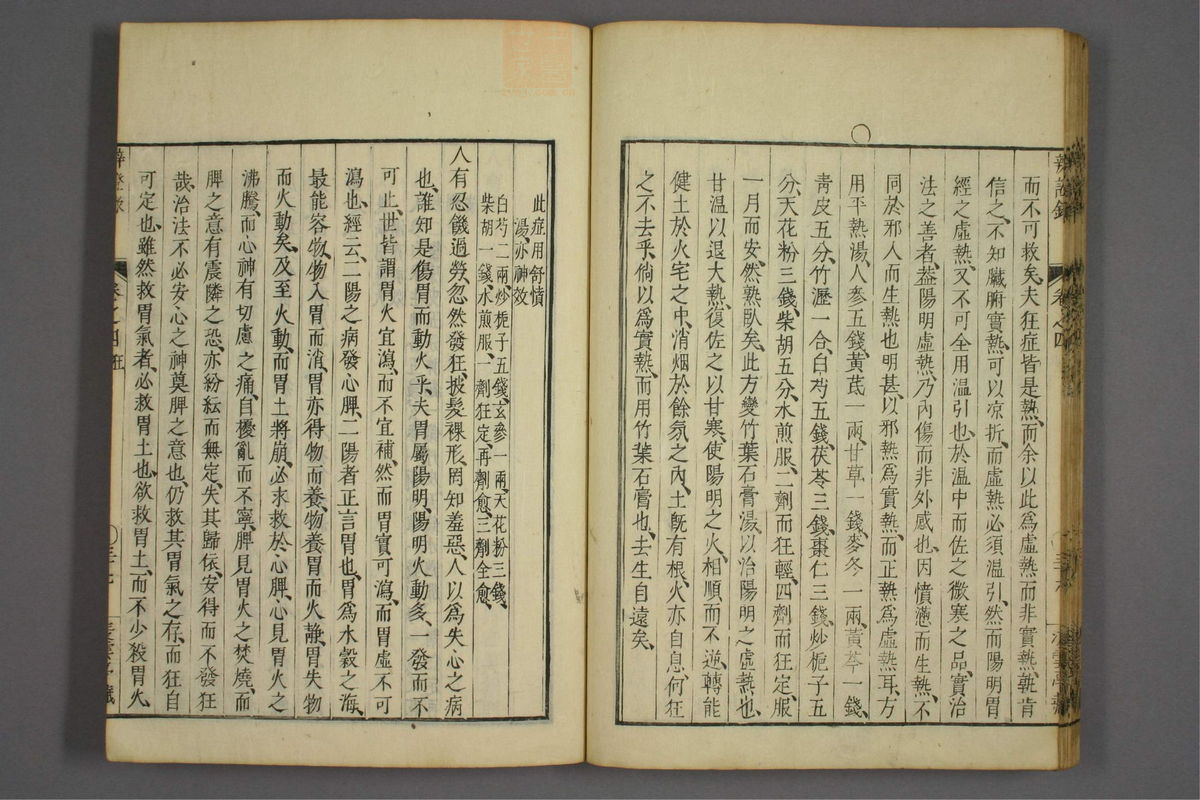 而不可救矣、夫狂症皆是熱、而余以此爲虛熱而非實熱、孰肯
信之、不知臟腑實熱、可以凉折、而虛熱必須溫引、然而陽明胃
經之虛熱、又不可全用溫引也、於溫中而佐之微寒之品、實治
法之善者、葢陽明虛熱、乃內傷而非外感也、因憤懣而生熱、不
同於邪人而生熱也明甚、以邪熱爲實熱、而正熱爲虛熱耳、方
用平熱湯、人參五錢、黃茋一兩、甘草一錢、麥冬一兩、黃芩一錢、
青皮五分、竹瀝一合、白芍五錢、茯苓三錢、棗仁三錢、炒梔子五
分、天花粉三錢、柴胡五分、水煎服、二劑而狂輕、四劑而狂定、服
一月而安、然熟臥矣、此方變竹葉石膏湯、以治陽明之虛熱也、
甘溫以退大熱、復佐之以甘寒、使陽明之火、相順而不逆、轉能
健土於火宅之中、消烟於餘氛之內、土旣有根、火亦自息、何狂
之不去乎、倘以爲實熱、而用竹葉石膏也、去生自遠矣、
此症用舒憤
湯、亦神效
白芍二兩、炒梔子五錢、玄參一兩、天花粉三錢、
柴胡一錢、水煎服、一劑狂定、再劑愈、三劑全愈、
人有忍饑過勞、忽然發狂、披髮裸形、罔知羞惡、人以爲失心之病
也、誰知是傷胃而動火乎、夫胃屬陽明、陽明火動、多一發而不
可止、世皆謂胃火宜瀉、而不宜補、然而胃實可瀉、而胃虛不可
瀉也、經云、二陽之病發心脾、二陽者正言胃也、胃爲水穀之海、
最能容物、物入胃而消、胃亦得物而養、物養胃而火靜、胃失物
而火動矣、及至火動、而胃土將崩、必求救於心脾、心見胃火之
沸騰、而心神有切慮之痛、自擾亂而不寧、脾見胃火之焚燒、而
脾之意有震隣之恐、亦紛紜而無定、失其歸依、安得而不發狂
哉、治法不必安心之神奠脾之意也、仍救其胃氣之存、而狂自
可定也、雖然救胃氣者、必救胃土也、欲救胃土、而不少殺胃火、
卷之四 狂